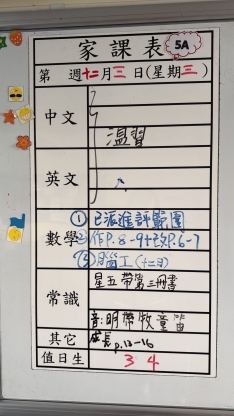 家課表 5A
第 週十二月三日(星期三)
中文
温習
英文
數學
①已派進評範圍
②作P.8-9+改P.6-7
③腦工(十二月)
常識
星五帶第三冊書
音:明帶牧童笛
其它
成長p.13-16
值日生
3 4